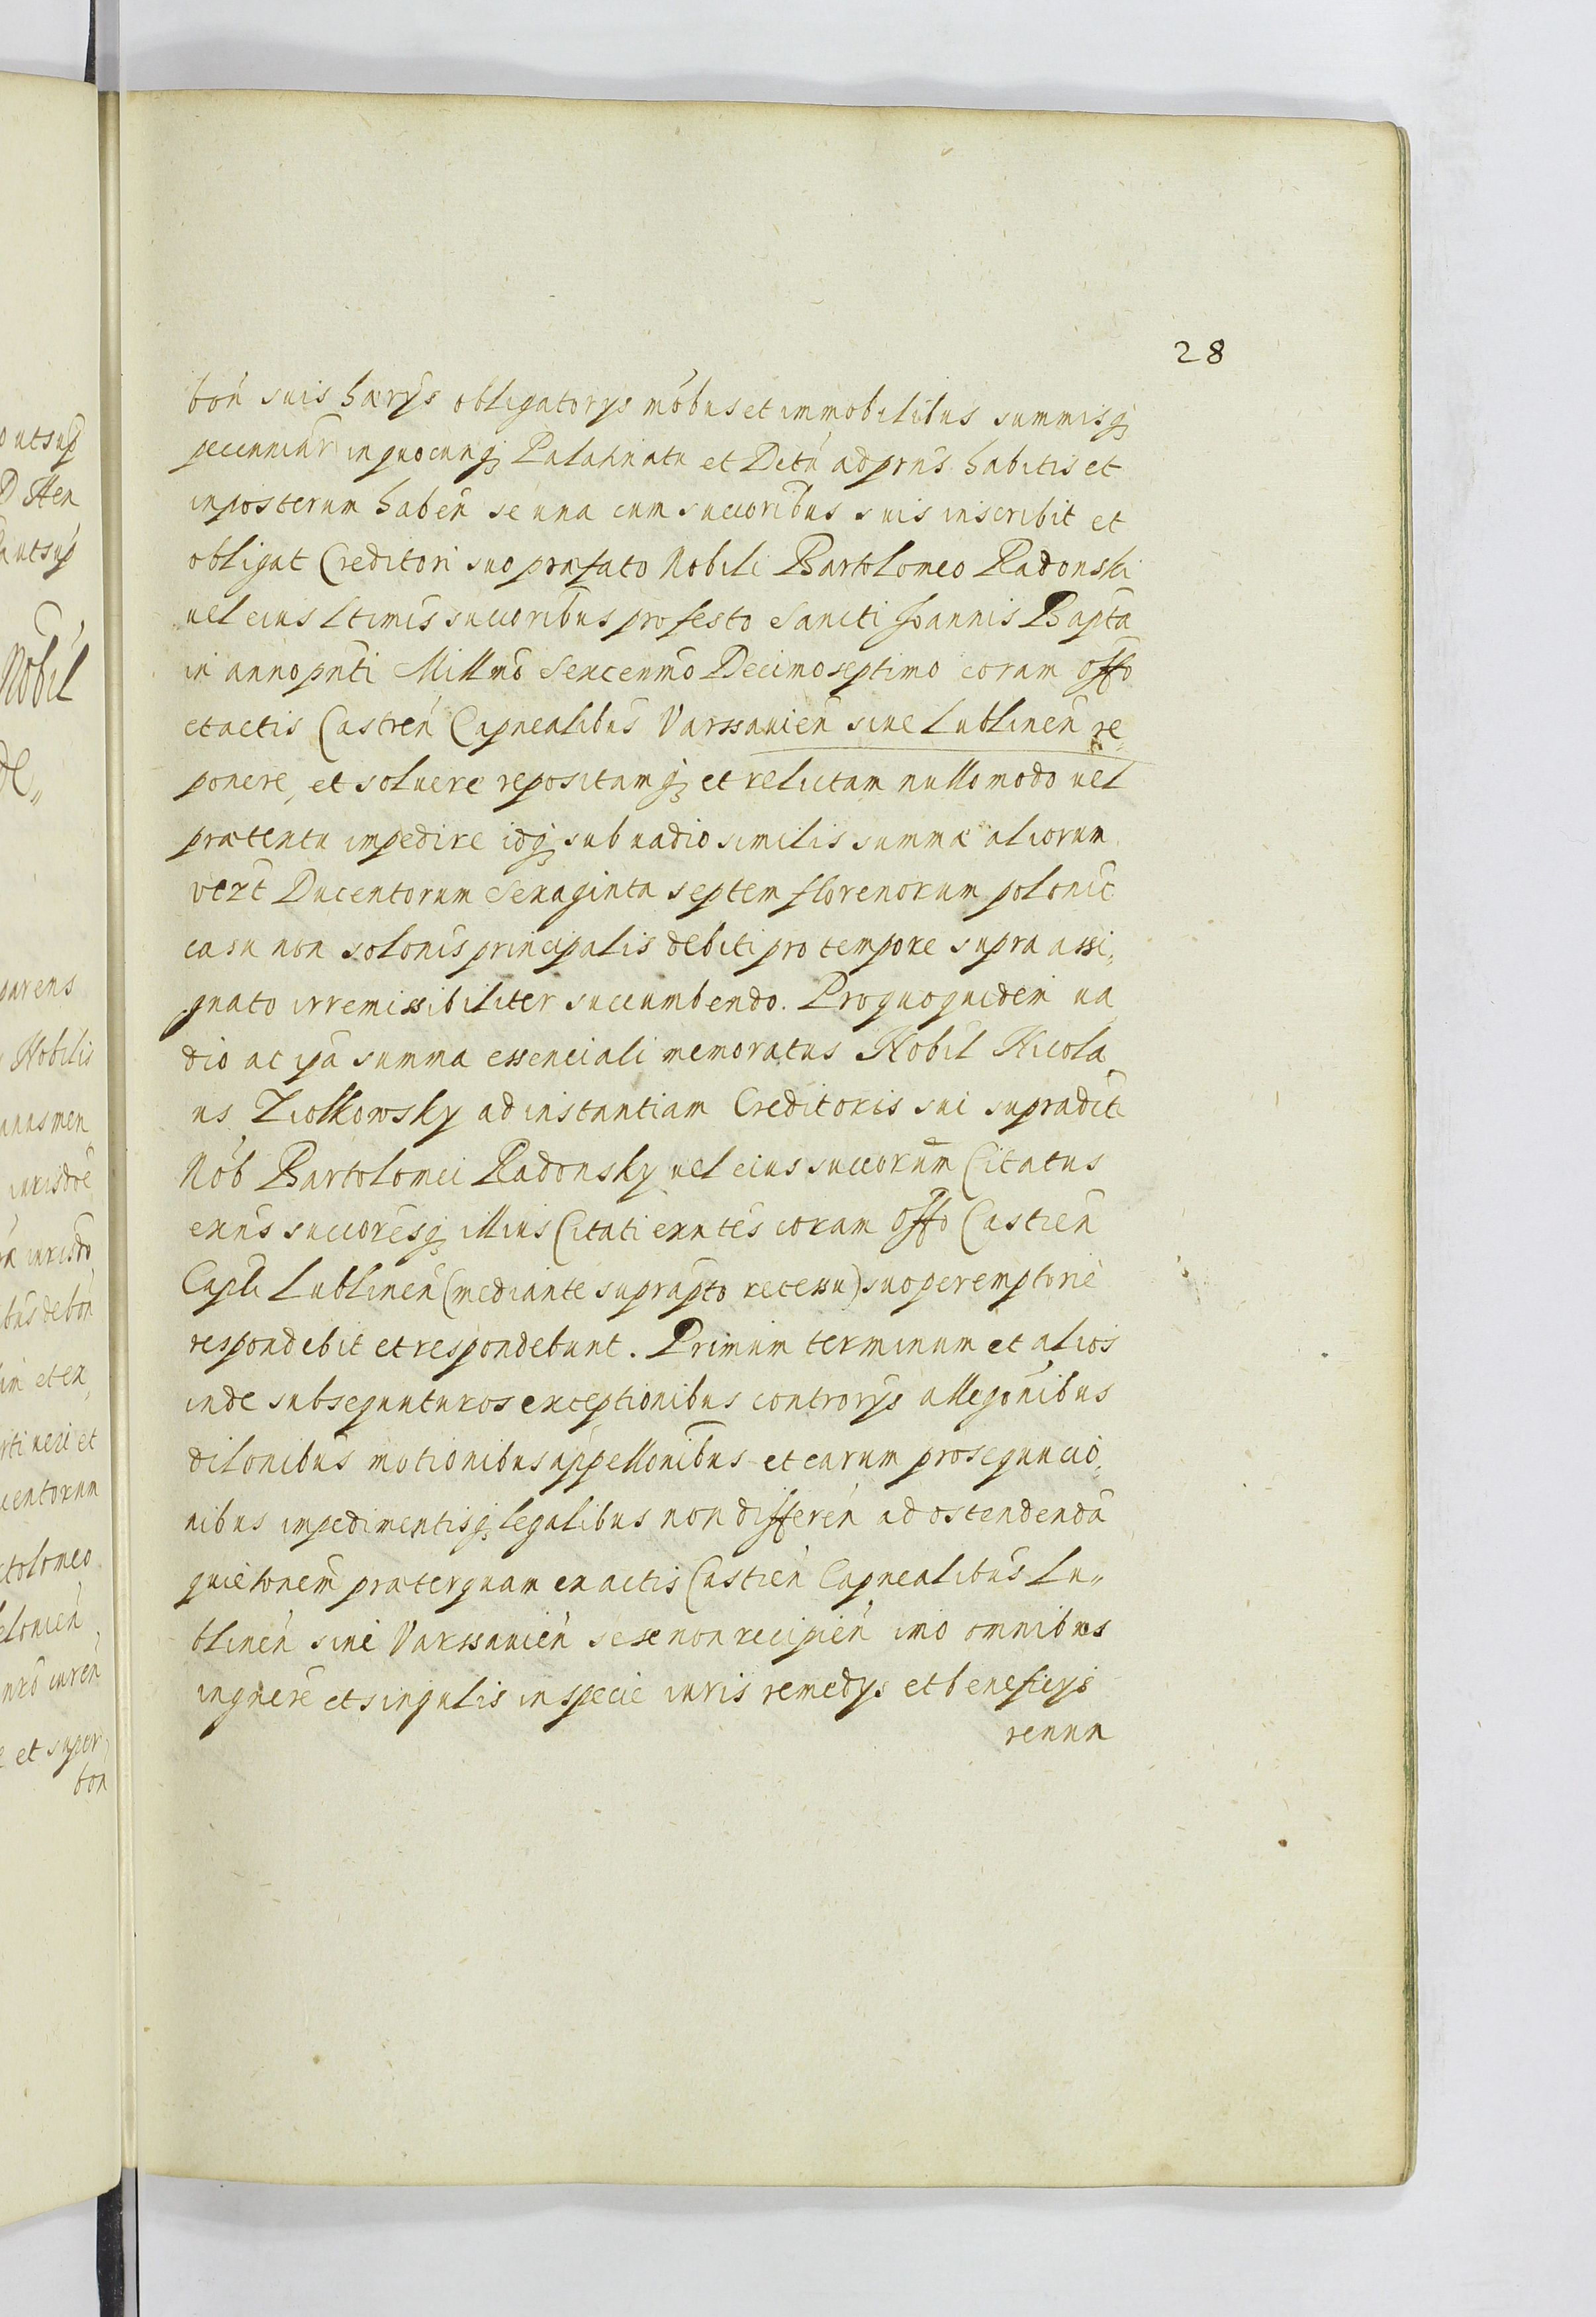 28
bon̄ suis hærijs obligatorijs mōbus et immobilibus summisq̨
pecuniar̄ in quocunq̨ Palatinatu et Dctū ad prn̄s habitis et
in posterum haben̄ se una cum succoribus suis inscribit et
obligat Creditori suo præfato Nobili Bartolomeo Radonski
uel eius ltimis succoribus pro festo Sancti Joannis Bapta
in anno pn̄ti Millmō Sexcenmō Decimoseptimo coram Offo
et actis Castren̄ Capnealibus Varssauien̄ siue Lublinen̄ re,
ponere, et soluere repositamq̨ et relictam nullo modo uel
prætentu impedire idq̨ sub uadio similis summæ aliorum
vert̄ Ducentorum Sexaginta septem florenorum polonic̄
casu non solonis principalis debiti pro tempore supra assi,
gnato irremissibiliter succumbendo. Pro quoquidem ua
dio ac ipā summa essenciali memoratus Nobil Nicola
us Ziolkowsky ad instantiam Creditoris sui supradicti
Nob̄ Bartolomei Radonsky uel eius succorum Citatus
exns̄ succoresq̨ illius Citati exntes̄ coram Offo Castren̄
Capli Lublinen̄ (mediante suprapto recessu) suo peremptorie
respondebit et respondebunt. Primum terminum et alios
inde subsequuturos exceptionibus controrijs allegōnibus
dilonibus motionibus appellonibus et earum prosequucio,
nibus impedimentisq̨ legalibus non differen̄ ad ostendendā
quietonem præterquam ex actis Castren̄ Capnealibus Lu,,
blinen̄ siue Varssauien̄ sese non recipien̄ imo omnibus
in gnēre et singulis in specie iuris remedijs et beneficijs
renun